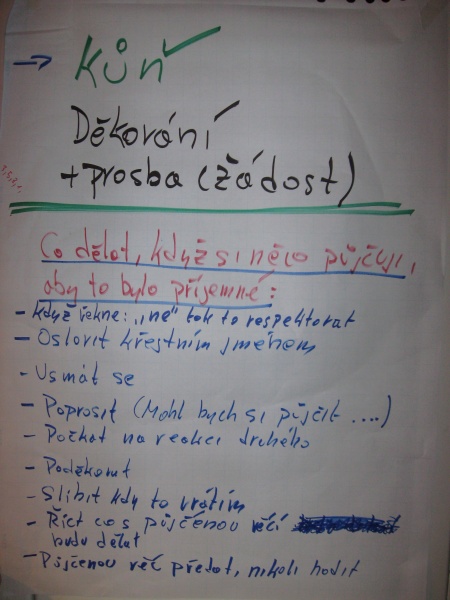 → Kůň
Děkování
+ prosba (žádost)
Co dělat, když si něco půjčuji,
aby to bylo příjemné:
- když řekne: „ne“ tak to respektovat
- Oslovit křestním jménem
- Usmát se
- Poprosit (Mohl bych si půjčit ....)
- Počkat na reakci druhého
- Poděkovat
- Slíbit kdy to vrátím
- Říct co s půjčenou věcí
budu dělat
- Půjčenou věc předat, nikoli hodit